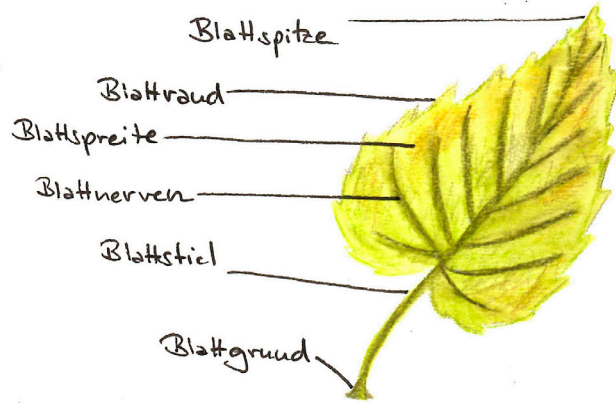 Blattspitze
Blattrand
Blattspreite
Blattnerven
Blattstiel
Blattgrund